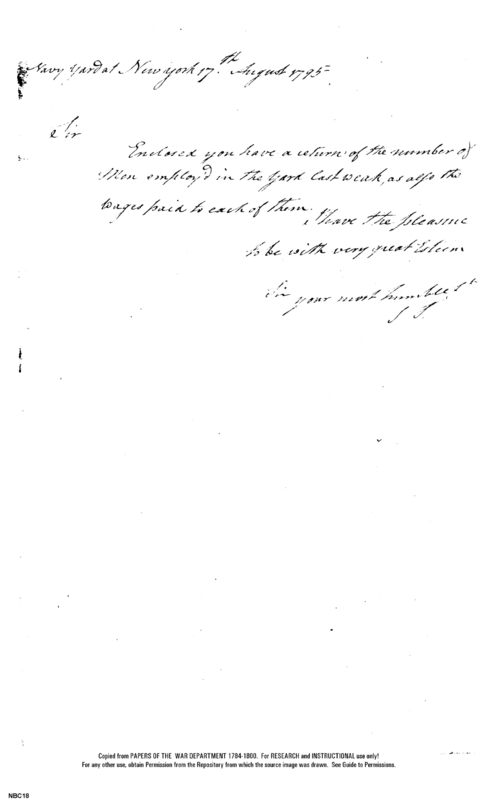 Navy Yard at New York 17.th August 1795
Sir
Enclosed you have a return of the number of
Men employ'd in the Yard last weak, as also the
wages paid to each of them. I have the pleasure
to be with very great Esteem
Sir your most humble St
Copied from PAPERS OF THE WAR DEPARTMENT 1784-1800. For RESEARCH and INSTRUCTIONAL use only!
For any other use, obtain Permission from the Repository from which the source image was drawn. See Guide to Permissions.
NBC18